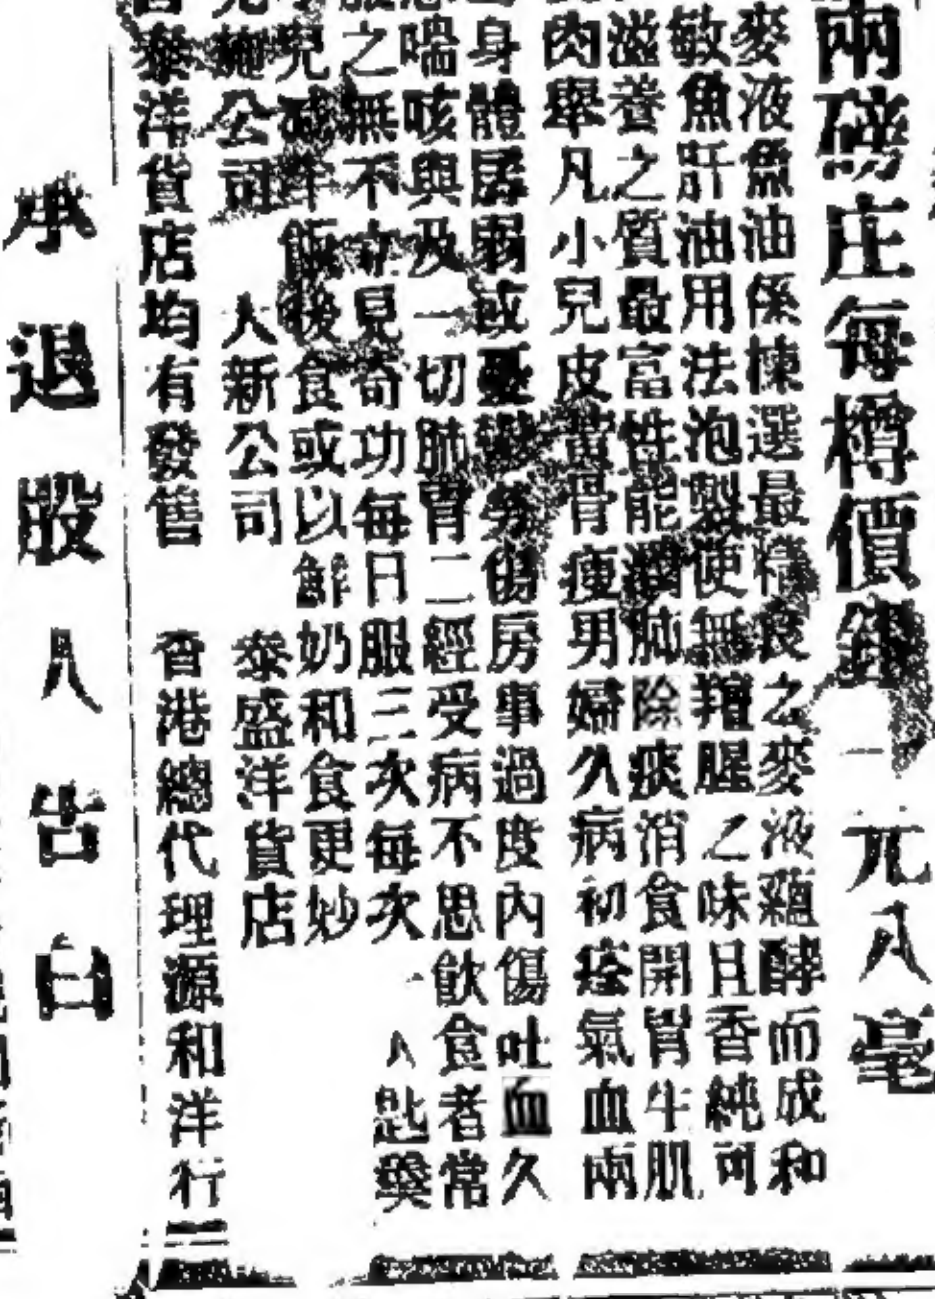 兩磅庄每樽價銀一元八毫
麥液魚油係楝選最　良之麥液蘊酵而成和
敏魚肝油用法泡製使無羶腥之味且香純可
滋養之質最富性能潤肺除痰消食開胃生肌
肉舉凡小兒皮黃骨瘦男婦久病初痊氣血兩
身體孱弱或憂鬱勞傷房事過度內傷吐血久
喘咳與及一切肺胃二經受病不思飲食者常
之無不立見奇功每日服三次每次一
八匙羹
兒減半飯後食或以鮮奶和食更妙
施公司　大新公司　泰盛洋貨店
泰洋貨店均有發售　香港總代理源和洋行
承退股人告白